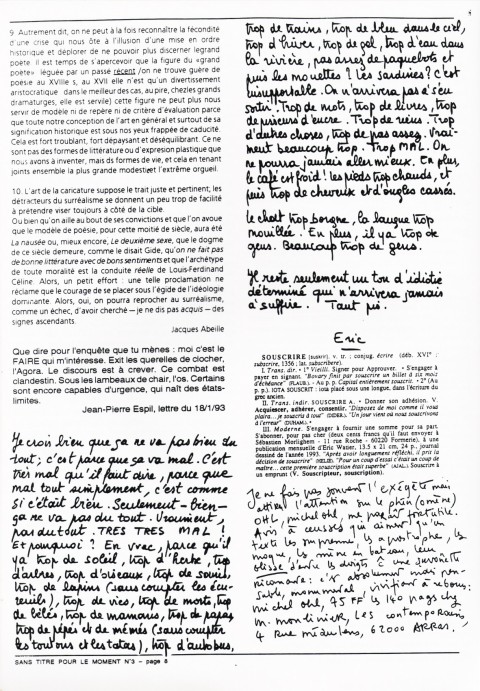 9 Autrement dit, on ne peut à la fois reconnaître la fécondité
d'une crise qui nous ôte à l'illusion d'une mise en ordre
historique et déplorer de ne pouvoir plus discerner legrand
poete Il est temps de s'apercevoir que la figure du «grand
poete» léguée par un passé récent /on ne trouve guère de
poésie au XVIIIe s, au XVII elle n'est qu'un divertissement
aristocratique dans le meilleur des cas, au pire, chezles grands
dramaturges, elle est servile) cette figure ne peut plus nous
servir de modèle ni de repère ni de critère d'évaluation parce
que toute notre conception de l'art en général et surtout de sa
signification historique est sous nos yeux frappée de caducité.
Cela est fort troublant, fort dépaysant et déséquilibrant. Ce ne
sont pas des formes de littérature ou d'expression plastique que
nous avons à inventer, mais ds formes de vie, et cela en tenant
joints ensemble la plus grande modestieet l'extrême orgueil.
10. L'art de la caricature suppose le trait juste et pertinent; les
détracteurs du surréalisme se donnent un peu trop de facilité
à prétendre viser toujours à côté de la cible.
Ou bien qu'on aille au bout de ses convictions et que l'on avoue
que le modèle de poésie, pour cette moitié de siècle, aura été
La nausée ou, mieux encore, Le deuxième sexe, que le dogme
de ce siècle demeure, comme le disait Gide, qu'on ne fait pas
de bonne littérature avec de bons sentiments et que l'archétype
de toute moralité est la conduite réelle de Louis-Ferdinand
Céline. Alors, un petit effort : une telle proclamation ne
réclame que le courage de se placer sous l'égide de l'idéologie
dominante. Alors, oui, on pourra reprocher au surréalisme,
comme un échec, d'avoir cherché — je ne dis pas acquis — des
signes ascendants.
Jacques Abeille
Que dire pour l'enquête que tu mènes : moi c'est le
FAIRE qui m'intéresse. Exit les querelles de clocher,
l'Agora. Le discours est à crever. Ce combat est
clandestin. Sous les lambeaux de chair, l'os. Certains
sont encore capables d'urgence, qui naît des états-
limites.
Jean-Pierre Espil, lettre du 18/1/93
Je crois bien que ça ne va pas bien du
tout ; c'est parce que ça va mal. C'est
très mal qu'il faut dire, parce que
mal tout simplement, c'est comme
si c'était bien. Seulement - bien -
ça ne va pas du tout. Vraiment,
pas du tout. TRES TRES MAL !
Et pourquoi ? En vrac, parce qu'il
y a trop de soleil, trop d'herbe, trop
d'arbres, trop d'oiseaux, trop de souris,
trop de lapins (sans compter les écu-
reuils), trop de vies, trop de morts, trop
de bébés, trop de mamans, trop de papas,
trop de pépés et de mémés (sans compter
les tontons et les tatas), trop d'autobus,
SANS TITRE POUR LE MOMENT N°3 - page 8
trop de trains, trop de bleu dans le ciel,
trop d'hiver, trop de gel, trop d'eau dans
la rivière, pas assez de paquebots et
puis les mouettes ? Les sardines ? C'est
insupportable. On n'arrivera pas à s'en
sortir. Trop de mots, trop de livres, trop
de priseurs d'encre. Trop de riens. Trop
d'autres choses, trop de pas assez. Vrai-
ment beaucoup trop. Trop MAL. On
ne pourra jamais aller mieux. En plus,
le café est froid ! les pieds trop chauds, et
puis trop de cheveux et d'ongles cassés.
Le chat trop borgne, la langue trop
mouillée. En plus, il y a trop de
gens. Beaucoup trop de gens.
Il reste seulement un ton d'idiotie
déterminé qui n'arrivera jamais
à suffire. Tant pis.
Eric
SOUSCRIRE
v. tr. ; conjug. écrire (déb. XVIe :
subscrire, 1356 ; lat. subscribere).
I. Trans. dir. • 1° Vieilli. Signer pour Approuver. • S'engager à
payer en signant.
II. Trans. indir. SOUSCRIRE A. • Donner son adhésion. V.
Acquiescer, adhérer, consentir.
III. Moderne. S'engager à fournir une somme pour sa part.
S'abonner, pour pas cher (deux cents francs qu'il faut envoyer à
Sébastien Morlighem - 11 rue Roche - 60220 Formerie), à une
publication mensuelle d'Eric Watier, 13.5 x 21 cm, 24 p., journal
dessiné de l'année 1993.
un emprunt (V. Souscripteur, souscription).
Je ne fais pas souvent l'exégète mais
attire l'attention sur le phén(omène)
OHL, michel ohl, me paraît
Avis à ceusses qui aiment qu'un
texte les
moque, les mène en bateau, leur
glisse entre les doigts
michel ohl, 75 FF les 140 pages chez
les contemporains
62000 ARRAS.